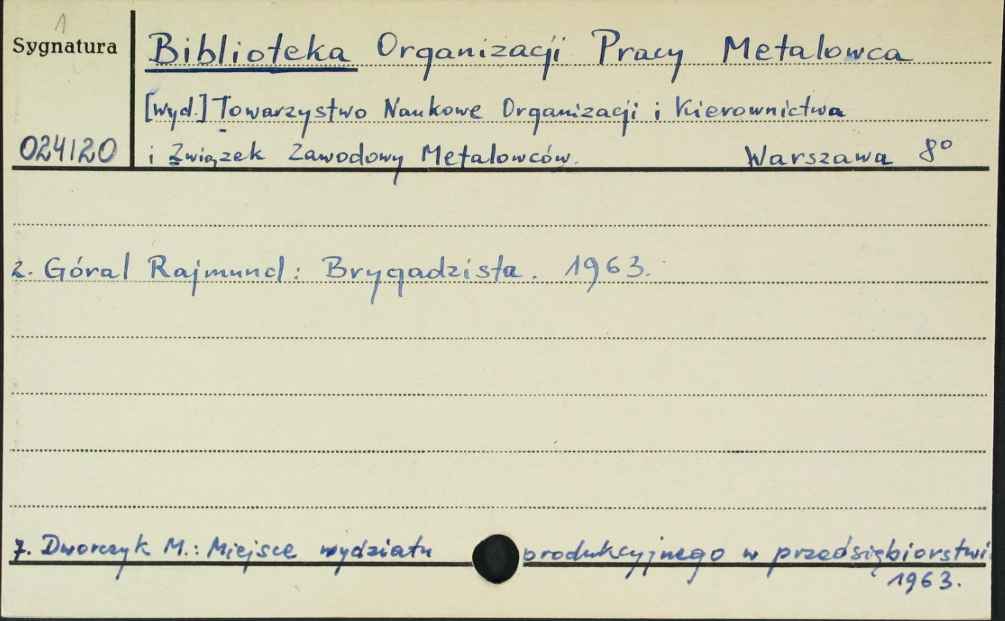 1
Sygnatura
Biblioteka Organizacji Pracy Metalowca
[wyd.] Towarzystwo Naukowe Organizacji i Kierownictwa
024120
i Związek Zawodowy Metalowców. Warszawa 8°
2. Góral Rajmund: Brygadzista. 1963.
7. Dworczyk M.: Miejsce wydziału produkcyjnego w przedsiębiorstwi
1963.